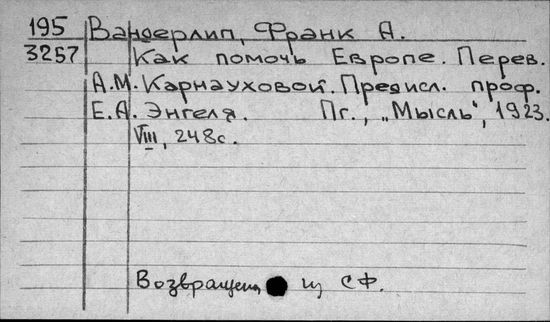 195 Вандерлип, Франк А.
3257 Как помочь Европе. Перев.
А.М. Карнауховой. Предисл. проф.
Е.А. Энгеля. Пг., „Мысль", 1923.
VIII, 248с.
Возвращена из СФ.